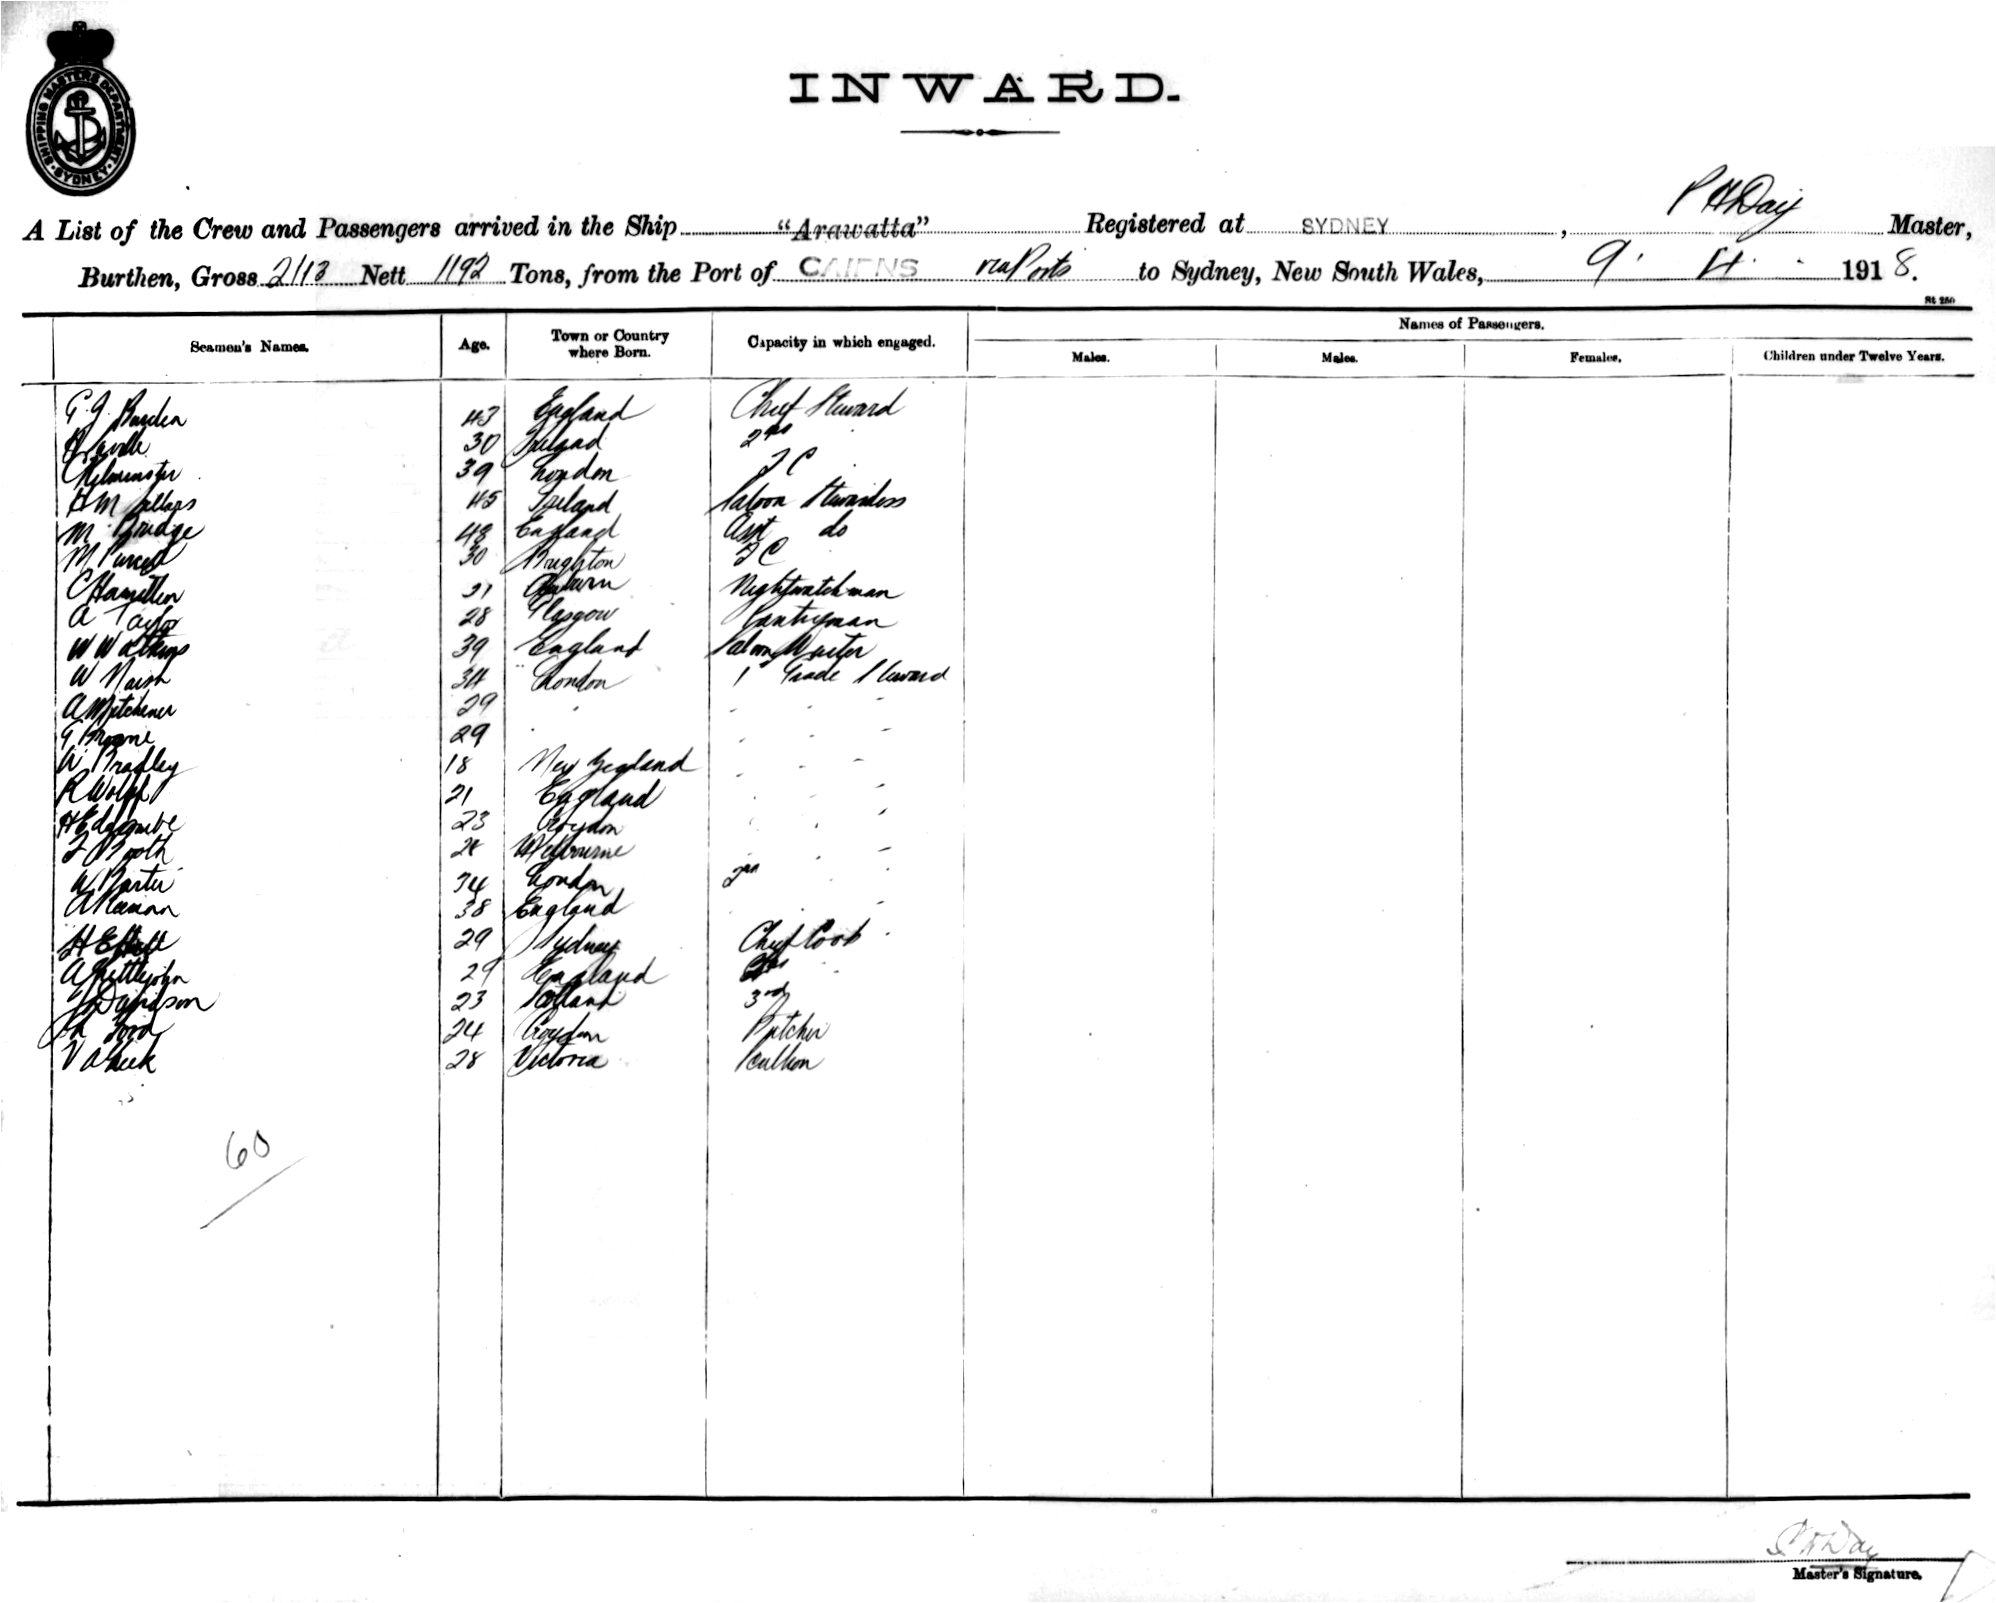 SHIPPING MASTERS DEPARTMENT · SYDNEY ·
INWARD.
A List of the Crew and Passengers arrived in the Ship "Arawatta" Registered at SYDNEY, P H Day Master,
Burthen, Gross 2113 Nett 1192 Tons, from the Port of CAIRNS via Ports to Sydney, New South Wales, 9. 4. 1918.
St 250
Seamen's Names. Age. Town or Country where Born. Capacity in which engaged. Names of Passengers.
Males. Males. Females. Children under Twelve Years.
G. J. Burden 43 England Chief Steward
30 Ireland 2nd
39 London
H M Sellars 45 Ireland Saloon Stewardess
M Brudge 48 England Asst do
M Purcell 30 Brighton
C Hamilton 21 Auburn Nightwatchman
A Taylor 28 Glasgow Pantryman
W Watkins 39 England Saloon Waiter
W Naish 34 London 1st Grade Steward
A Mitchener 29
G Browne 29
W Bradley 18 New Zealand
R Wolff 21 England
H Edgcumbe 23 Croydon
F Booth 28 Melbourne
W Barter 34 London 2nd
38 England
29 Sydney Chief Cook
A Littlejohn 29 England
Davidson 23 Scotland 3rd
Ford 24 Croydon Butcher
V Cheek 28 Victoria Scullion
60
P H Day
Master's Signature.